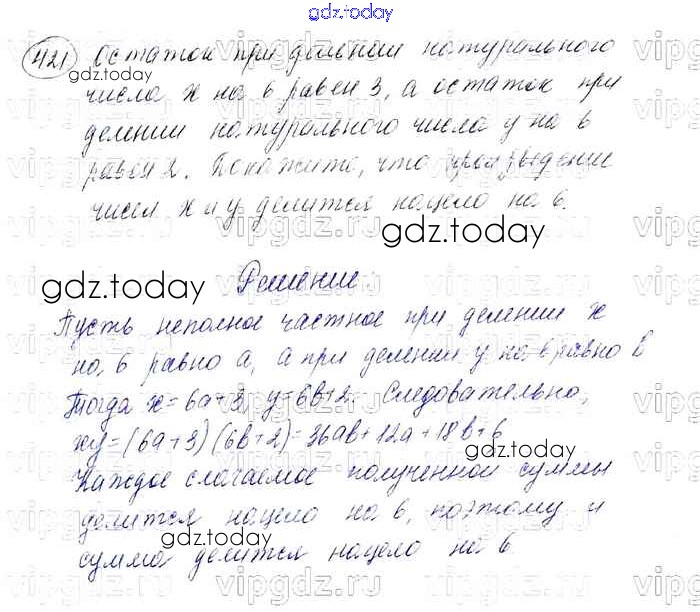 gdz.today
421 Остаток при делении натурального
числа x на 6 равен 3, а остаток при
делении натурального числа y на 6
равен 2. Покажите, что произведение
чисел x и y делится нацело на 6.
gdz.today
gdz.today
Решение
gdz.today
Пусть неполное частное при делении x
на 6 равно a, а при делении y на 6 равно b
Тогда x = 6a+3, y = 6b+2. Следовательно,
xy = (6a+3)(6b+2) = 36ab+12a+18b+6
gdz.today
Каждое слагаемое полученной суммы
делится нацело на 6, поэтому и
сумма делится нацело на 6
gdz.today
vipgdz.ru